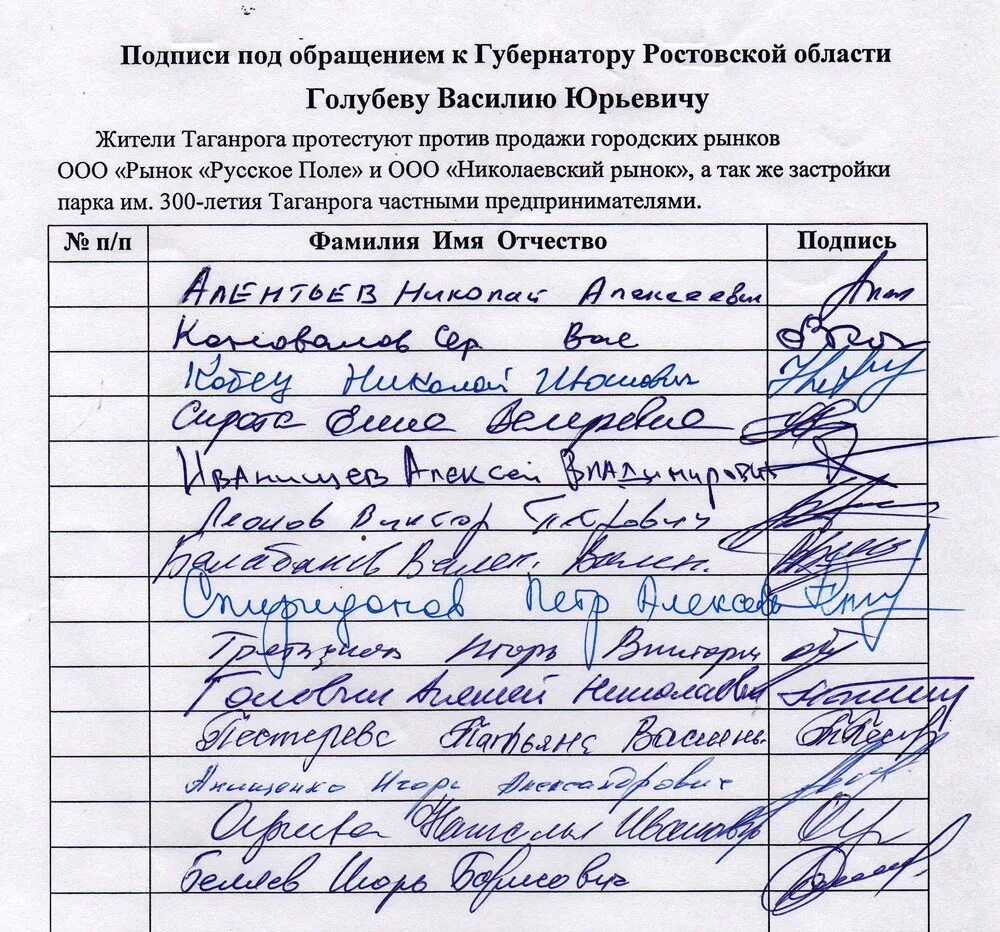 Подписи под обращением к Губернатору Ростовской области
Голубеву Василию Юрьевичу
Жители Таганрога протестуют против продажи городских рынков
ООО «Рынок «Русское Поле» и ООО «Николаевский рынок», а так же застройки
парка им. 300-летия Таганрога частными предпринимателями.
№ п/п Фамилия Имя Отчество Подпись
Алентьев Николай Алексеевич
Коновалов Сер Вас
Кобец Николай
Сирота Елена Валерьевна
Иванищев Алексей Владимирович
Леонов Виктор Петрович
Балабанов Вален. Вален.
Спиридонов Петр Алексеев
Игорь Виктори
Головин Алексей Николаевич
Пестерева Татьяна Василь
Анищенко Игорь Александрович
Наталья Ивановн
Беляев Игорь Борисович